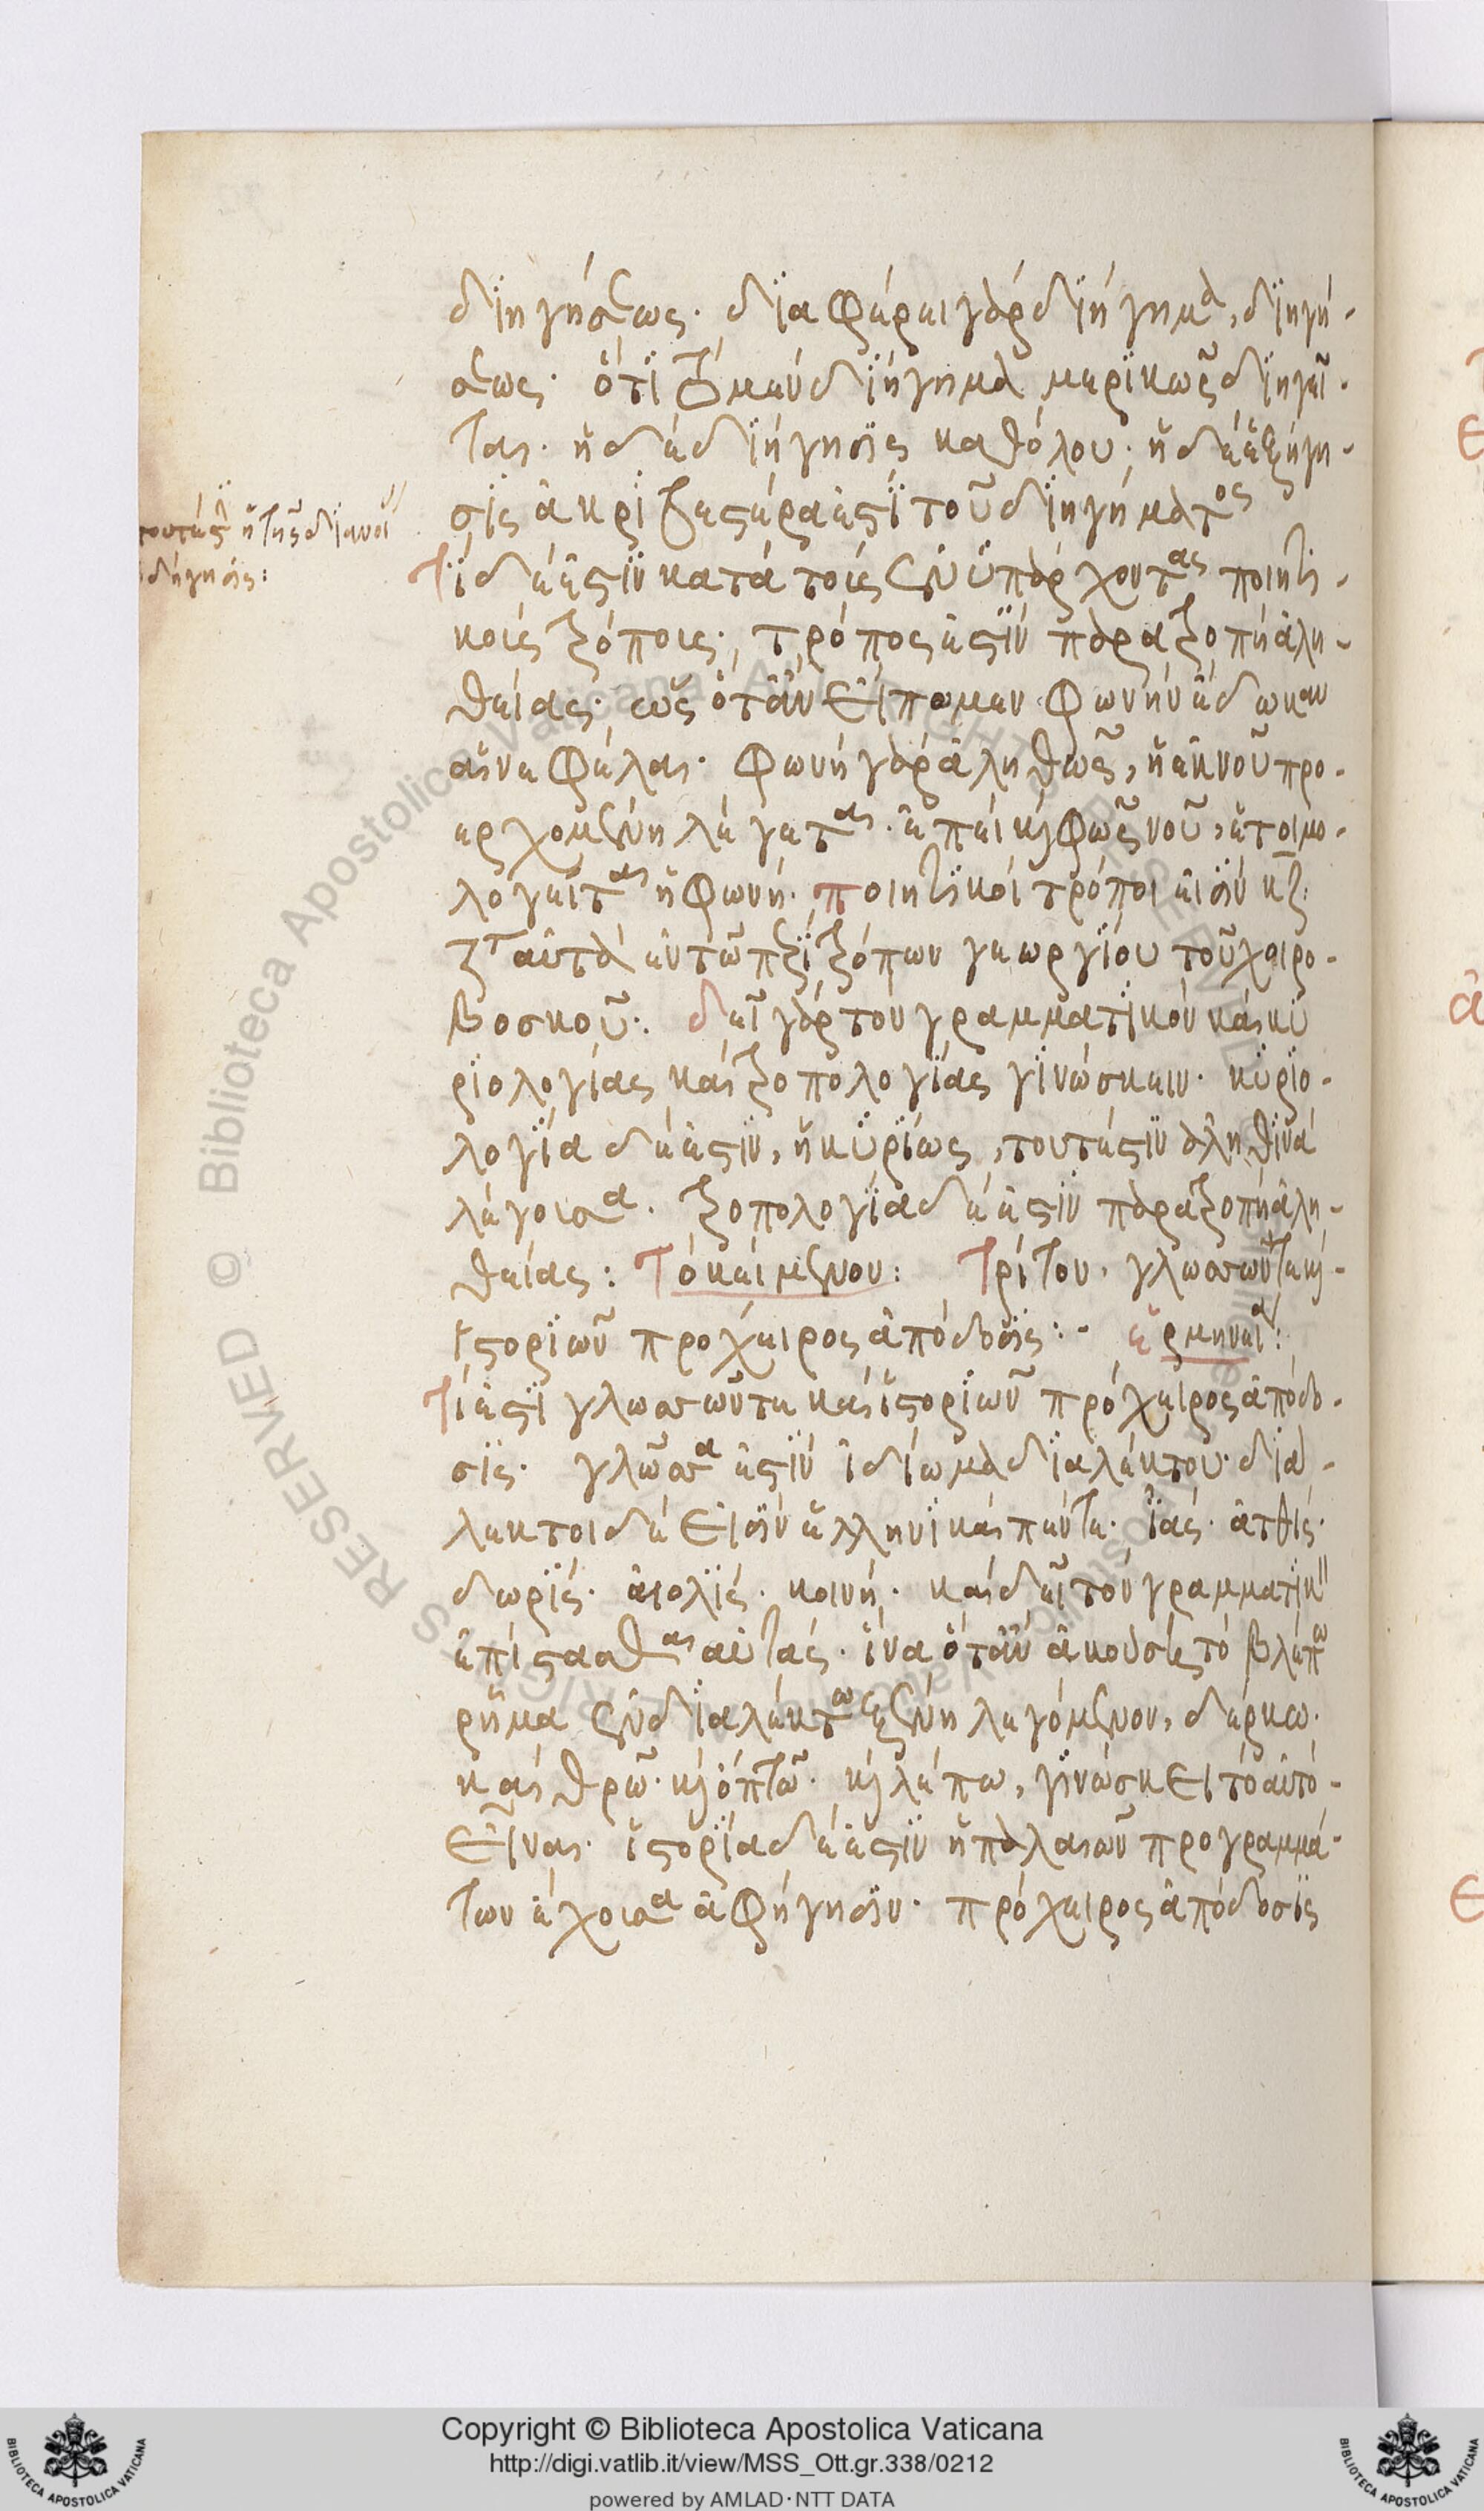 διηγήσεως· διαφέρει γὰρ διήγημα, διηγή-
σεως· ὅτι τὸ μὲν διήγημα μερικῶς διηγεῖ-
ται· ἡ δὲ διήγησις καθόλου· ἡ δὲ ἐξήγη-
σις ἀκριβεστέρα ἐστὶ τοῦ διηγήματος
τουτέστι ἡ τῆς διανοί
ὁδήγησις:
Τί δέ ἐστιν κατὰ τοὺς ἐνυπάρχοντας ποιητι-
κοὺς τρόπους· τρόπος ἐστὶν παρατροπὴ ἀλη-
θείας· ὡς ὅταν εἴπωμεν φωνὴν ἔδωκαν
αἱ νεφέλαι· φωνὴ γὰρ ἀληθῶς, ἡ ἐκ νοῦ προ-
ερχομένη λέγεται· ἐπεὶ καὶ φῶς νοῦ, ἐτοιμο-
λογεῖται ἡ φωνή· ποιητικοὶ τρόποι εἰσὶν κζ·
ζτ αὐτὰ ἐν τῶ περὶ τρόπων γεωργίου τοῦ χοιρο-
βοσκοῦ:· δεῖ γὰρ τὸν γραμματικὸν καὶ κυ
ριολογίας καὶ τροπολογίας γινώσκειν· κυριο-
λογία δέ ἐστιν, ἡ κυρίως, τουτέστιν ἀληθινὰ
λέγουσα· τροπολογία δέ ἐστιν παρατροπὴ ἀλη-
θείας: Τὸ κείμενον: Τρίτον· γλωσσῶν τε καὶ
ἱστοριῶν πρόχειρος ἀπόδοσις:- ἑρμηνεία:
Τί ἐστι γλωσσῶν τε καὶ ἱστοριῶν πρόχειρος ἀπόδο-
σις· γλῶσσα ἐστὶν ἰδίωμα διαλέκτου· διά-
λεκτοι δέ εἰσιν ἑλληνικαὶ πέντε· ἰάς· ἀτθίς·
δωρίς· αἰολίς· κοινή· καὶ δεῖ τὸν γραμματικὸν
ἐπίστασθαι αὐτάς· ἵνα ὅταν ἀκούση τὸ βλέπω
ρῆμα ἐν διαλέκτω ξένη λεγόμενον, δέρκω·
καὶ θρῶ· καὶ ὀπτῶ· καὶ λέπω, γινώσκει τὸ αὐτὸ-
εἶναι· ἱστορία δέ ἐστιν ἡ παλαιῶν προγραμμά-
των ἔχουσα ἀφήγησιν· πρόχειρος ἀπόδοσις
Copyright © Biblioteca Apostolica Vaticana
http://digi.vatlib.it/view/MSS_Ott.gr.338/0212
powered by AMLAD·NTT DATA